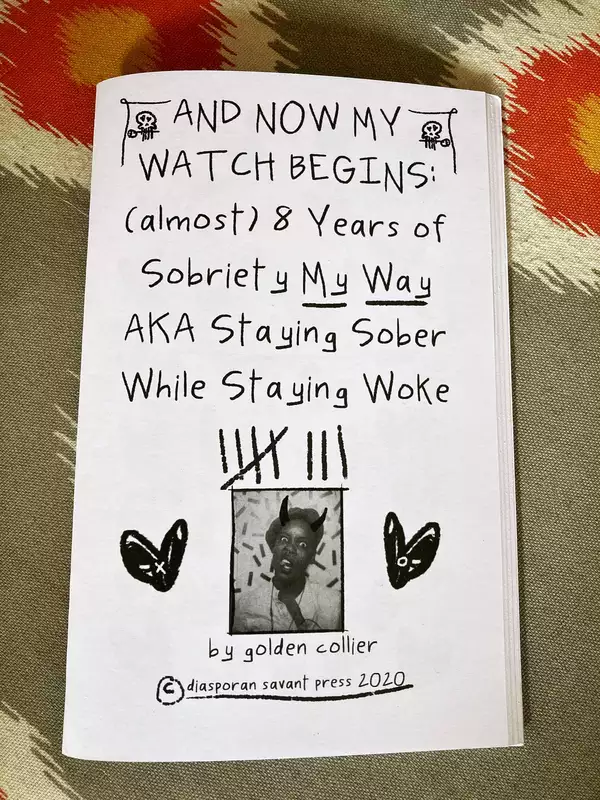 AND NOW MY
WATCH BEGINS:
(almost) 8 Years of
Sobriety My Way
AKA Staying Sober
While Staying Woke
by golden collier
© diasporan savant press 2020